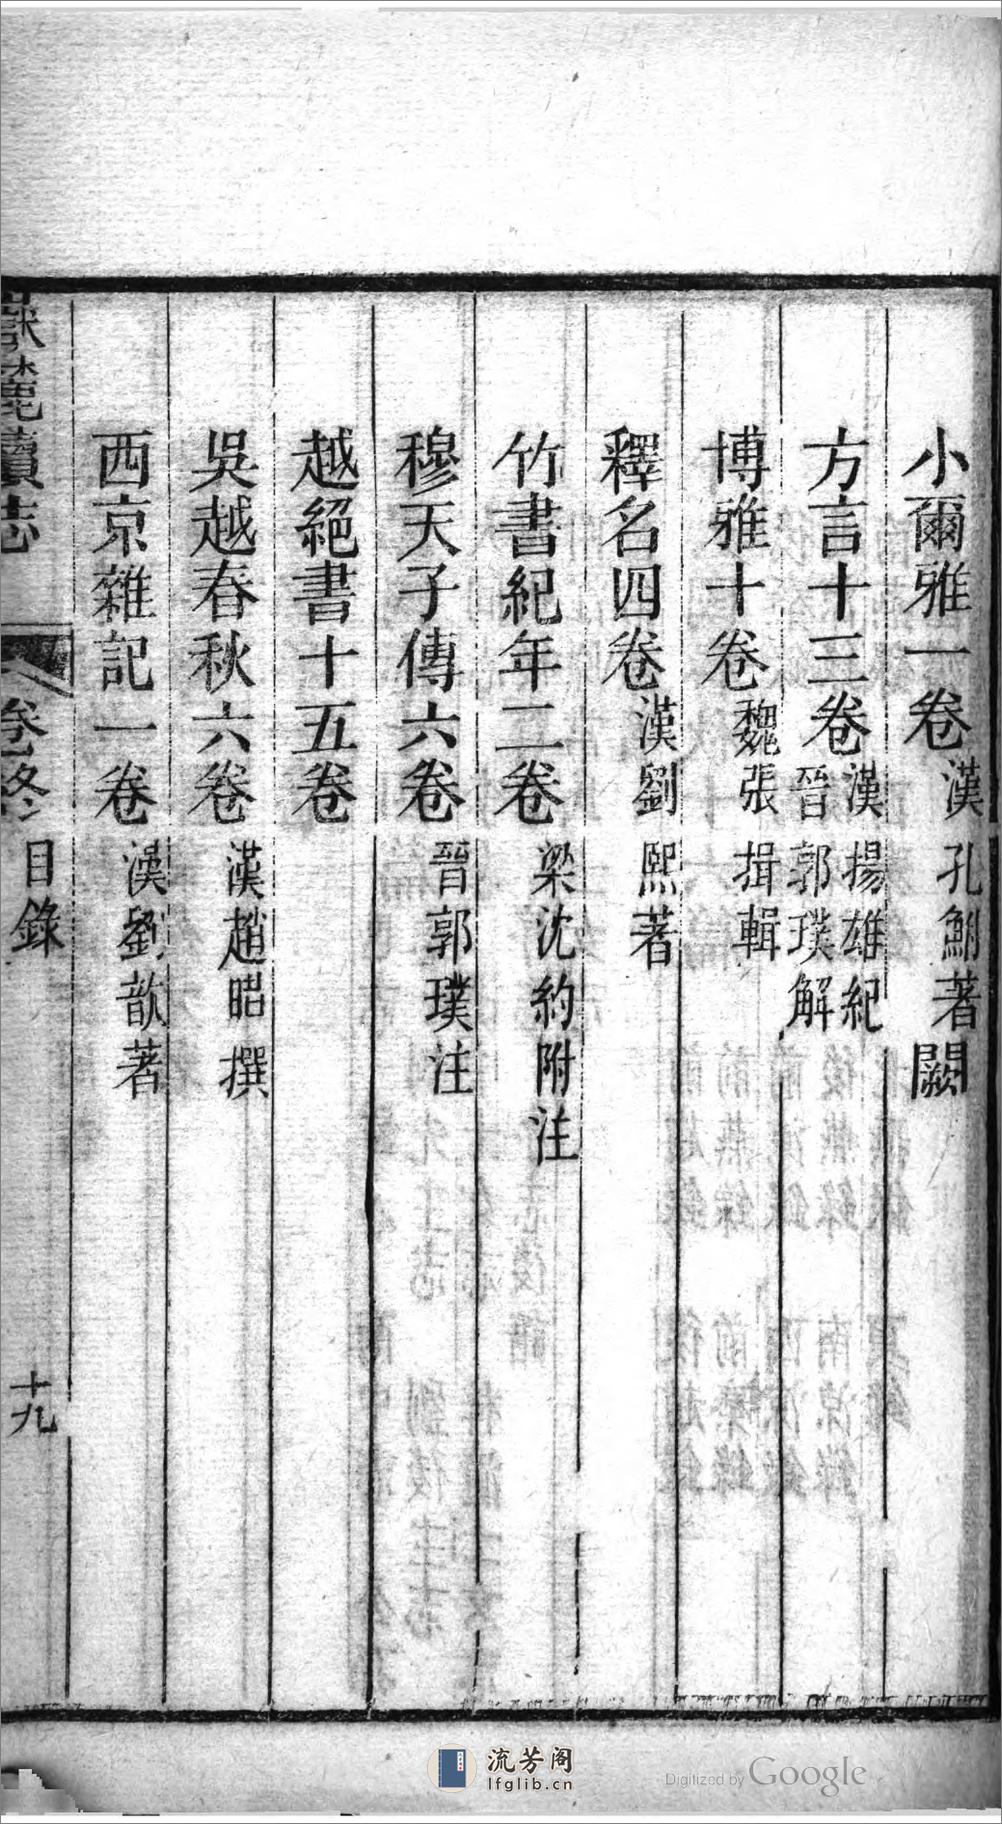 小爾雅一卷漢孔鮒著闕
方言十三卷漢揚雄紀
晉郭璞解
博雅十卷魏張揖輯
釋名四卷漢劉熙著
竹書紀年二卷梁沈約附注
穆天子傳六卷晉郭璞注
越絕書十五卷
吳越春秋六卷漢趙㫼撰
西京雜記一卷漢劉歆著
麓續志
卷終
目錄
十九
流芳阁
lfglib.cn
Digitized by Google